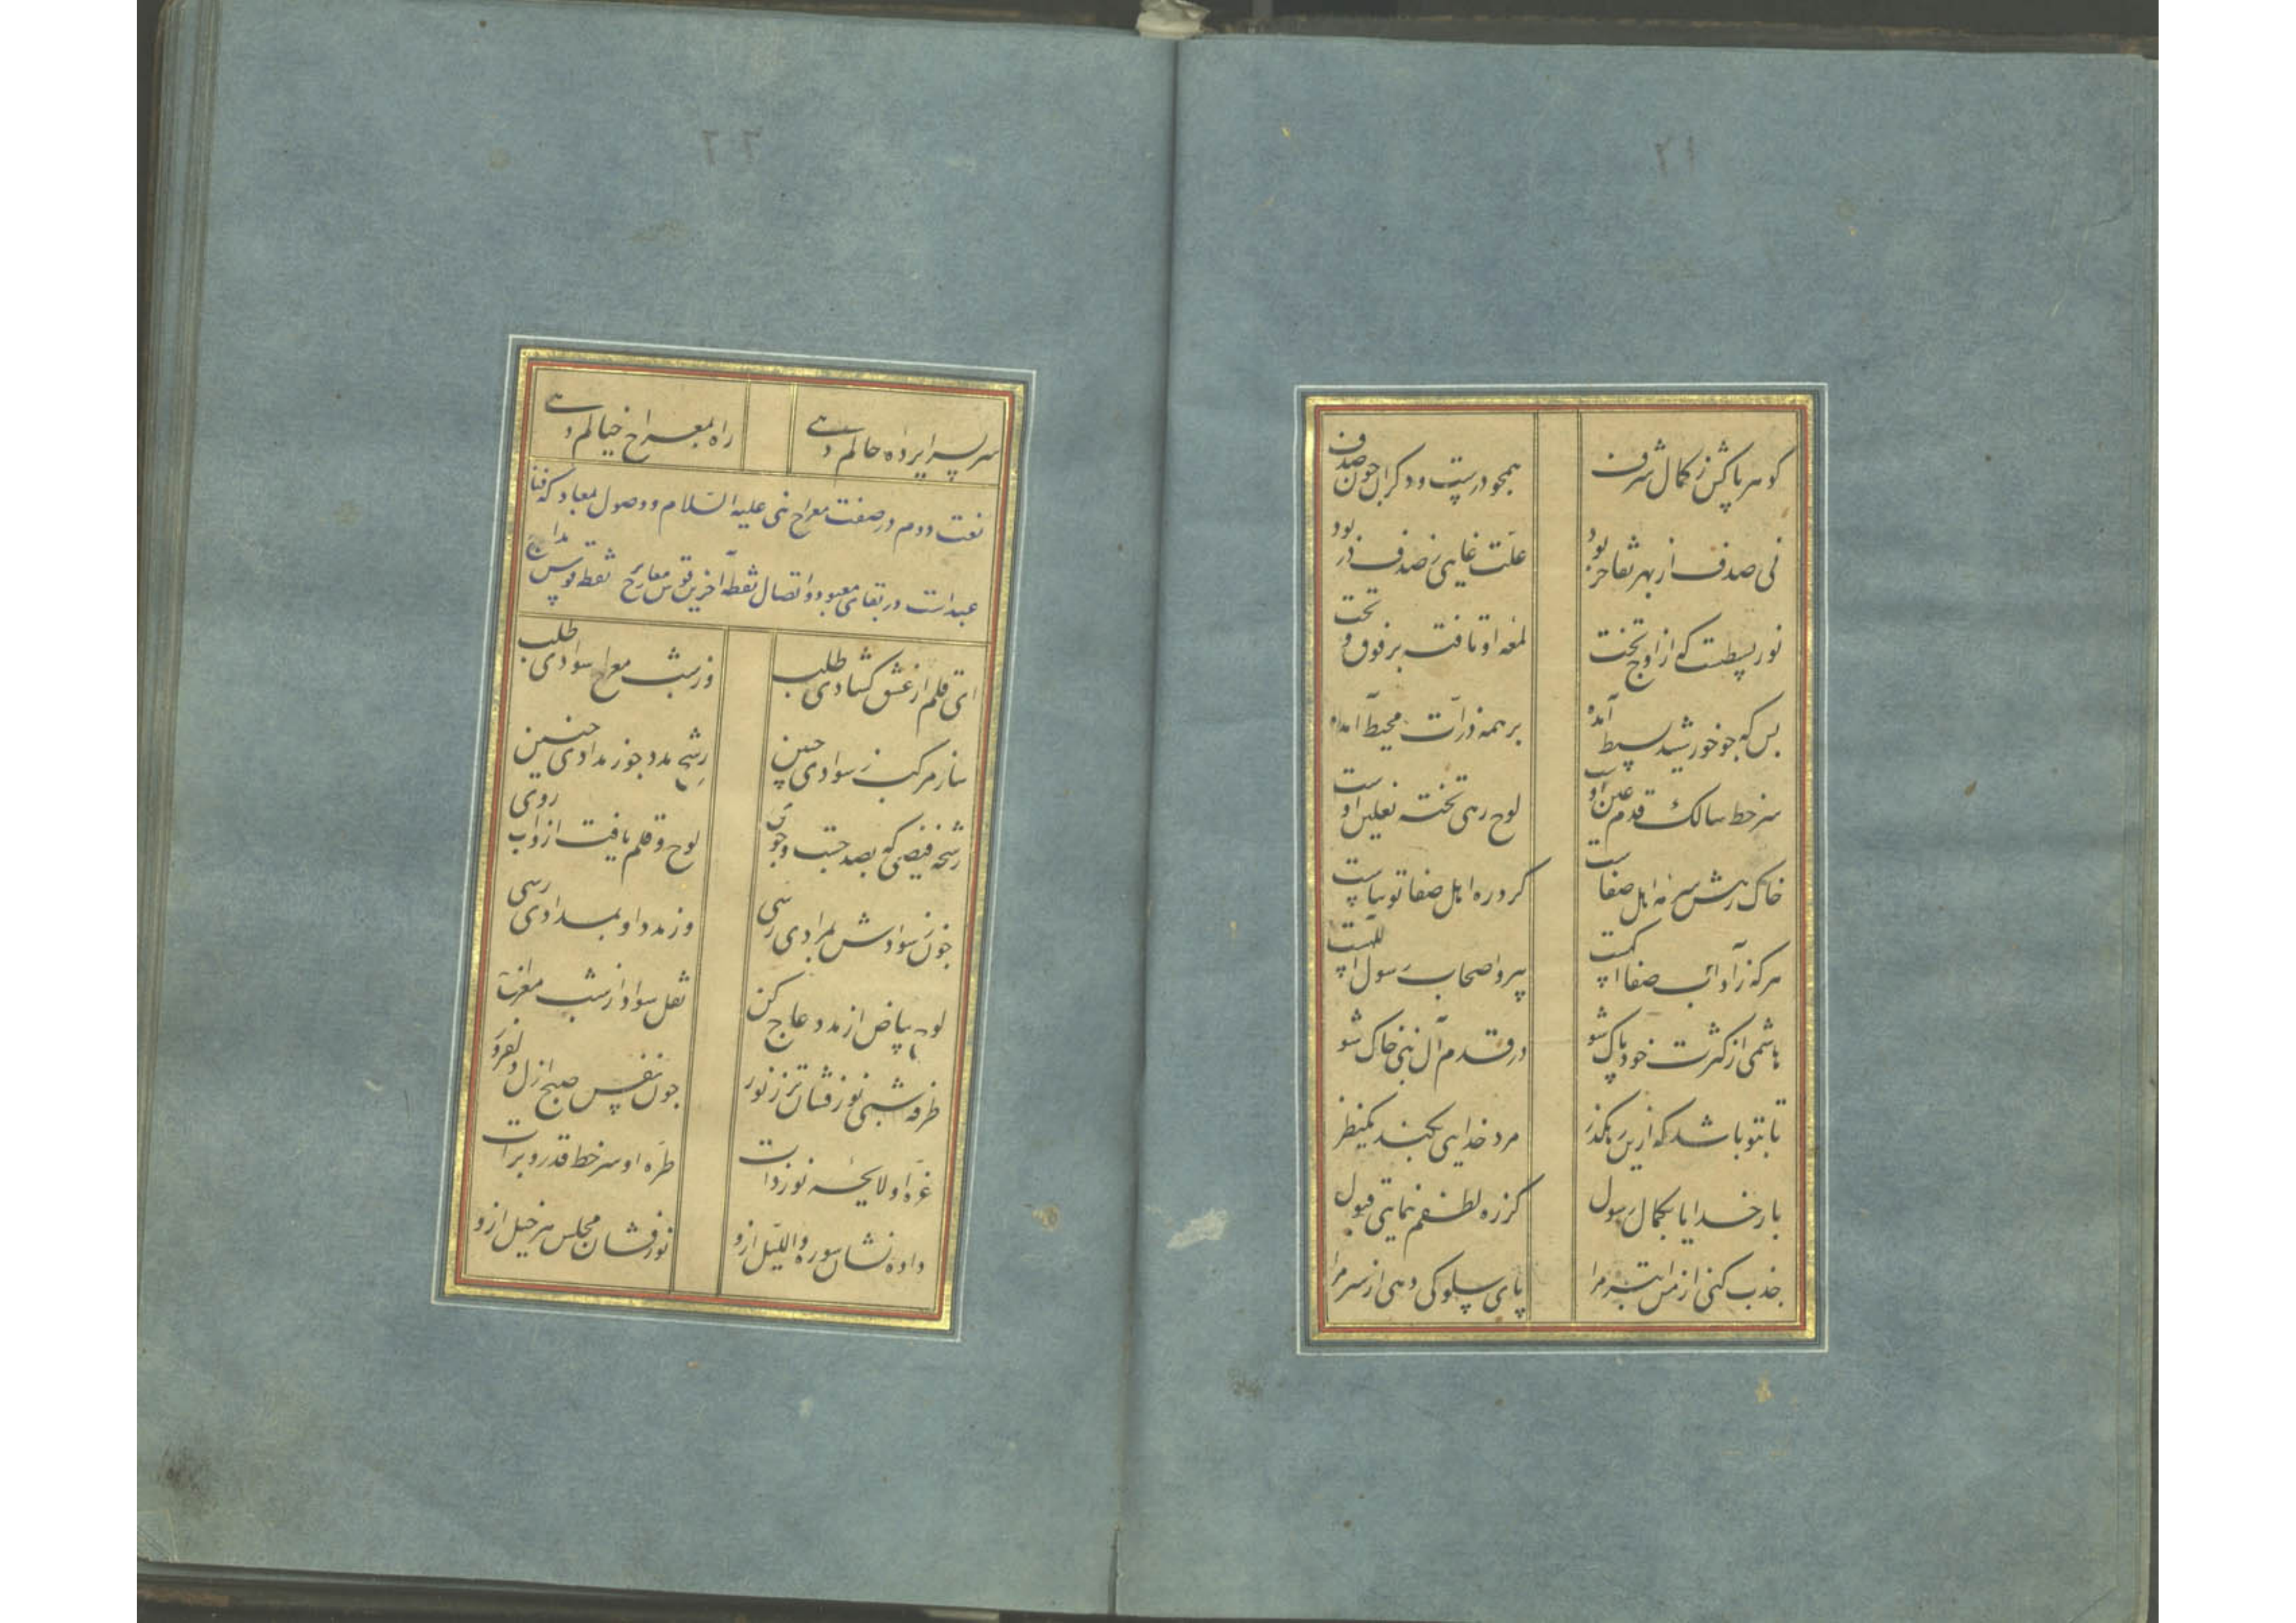 گوهر پاکش ز کمال شرف همچو درست و دگران چون صدف
نی صدف از بهر تفاخر بود علت غایی ز صدف در بود
نور بسیطست که از اوج تخت لمعه او تافت بر فوق و تحت
بس که چو خورشید بسیط آمده بر همه ذرات محیط آمده
سر خط سالک قدم عین اوست لوح رهی تخته نعلین اوست
خاک رهش سرمه اهل صفاست گرد ره اهل صفا توتیاست
هر که ز آداب صفا است پیرو اصحاب رسول الله است
هاشمی از کثرت خود پاک شو در قدم آل نبی خاک شو
تا بتو باشد که ازین رهگذر مرد خدایی بکند یکنظر
بار خدایا بکمال رسول کز ره لطفم نمایی قبول
جذب کنی از من ابتر مرا پای سلوکی دهی از سر مرا
سر بسراپرده حالم دهی راه بمعراج خیالم دهی
نعت دوم در صفت معراج نبی علیه السلام و وصول بمعاد که فنا
عبد است در بقای معبود و اتصال نقطه آخرین قوس معارج نقطه قوس
ای قلم از عشق گشادی طلب وز شب معراج سوادی طلب
ساز مرکب ز سوادی چنین رشح مدد جو ز مدادی چنین
رشحه فیضی که بصد جست وجوی لوح و قلم یافت ازو آب روی
چون ز سوادش بمرادی رسی وز مدد او بمدادی رسی
لوح بیاض از مدد عاج کن نقل سواد از شب معراج
طرفه شبی نور فشان تر ز نور چون نفس صبح ازل
غره او لایحه نور ذات طره او سر خط قدر و برات
داده نشان سوره واللیل ازو نور فشان مجلس هر خیل ازو